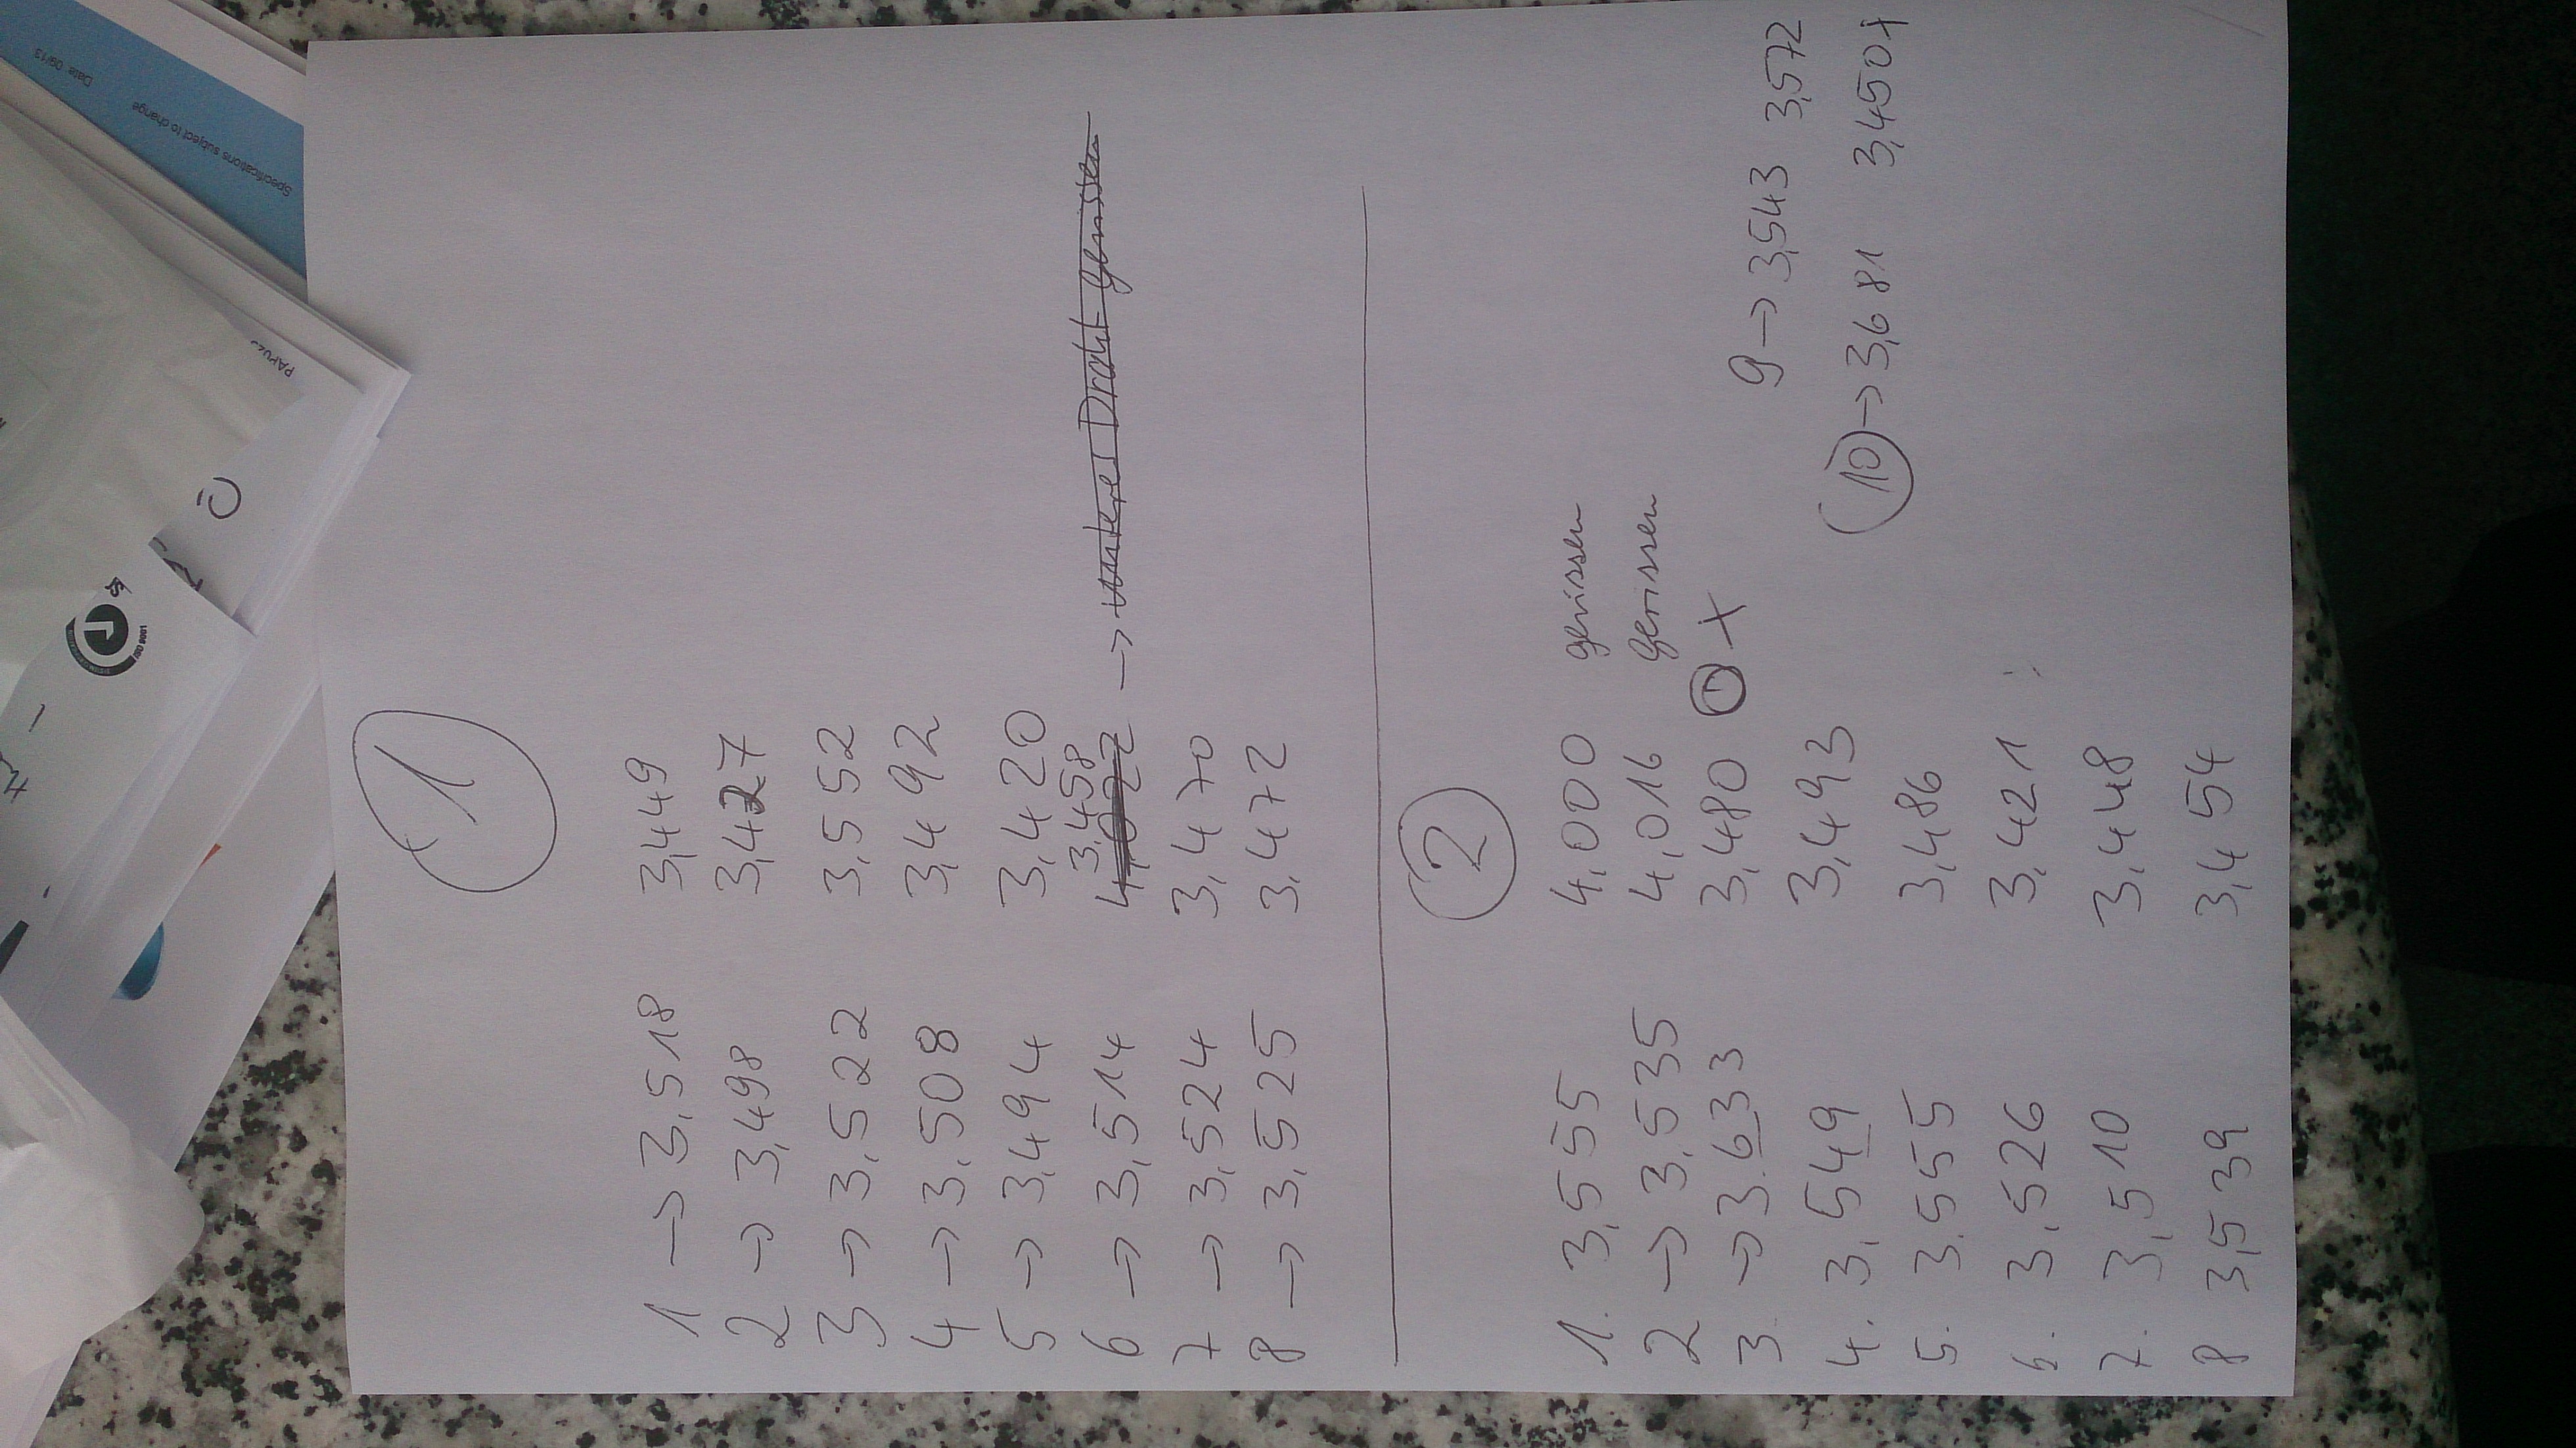 Date 09/13
Specifications subject to change
ISO 9001
1
1 → 3,518 3,449
2 → 3,498 3,427
3 → 3,522 3,552
4 → 3,508 3,492
5 → 3,494 3,420
6 → 3,514 3,458 4,022 → unterer Draht gerissen
7 → 3,524 3,470
8 → 3,525 3,472
2
1. 3,555 4,000 gerissen
2 → 3,535 4,016 gerissen
3. → 3.633 3,480 1 X
4. 3,549 3,493
5. 3.555 3,486
6. 3,526 3,421
7. 3,510 3,448
8 3,539 3,454
9 → 3,543 3,572
10 → 3,681 3,450